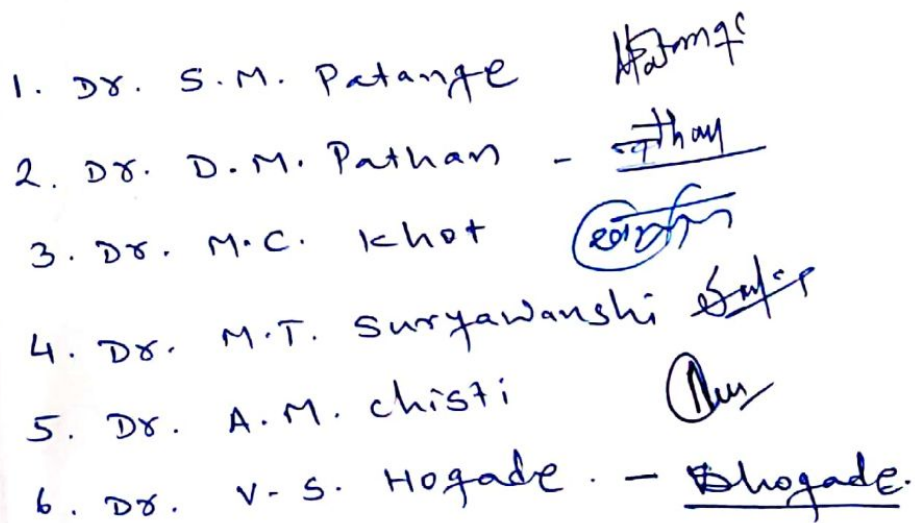 1. Dr. S.M. Patange
2. Dr. D.M. Pathan -
3. Dr. M.C. Khot
4. Dr. M.T. Suryawanshi
5. Dr. A.M. Chisti
6. Dr. V-S. Hogade. - Shogade.